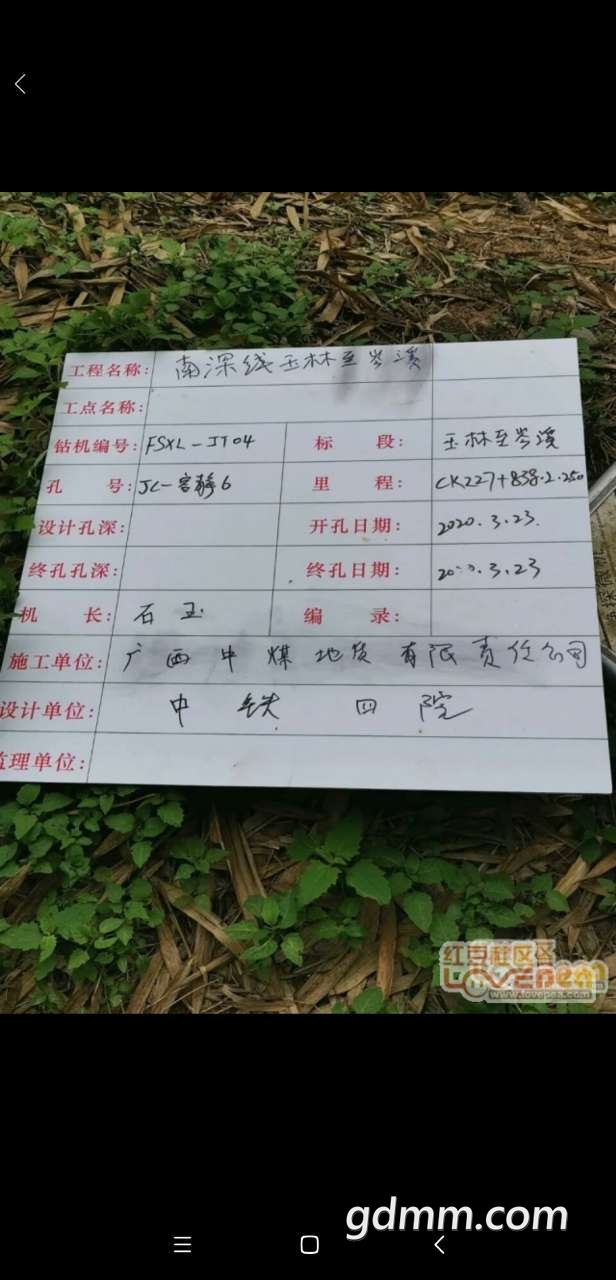 工程名称: 南深线玉林至岑溪
工点名称:
钻机编号: FSXL-JT04 标 段: 玉林至岑溪
孔 号: JC-容静6 里 程: CK227+838.2.250
设计孔深: 开孔日期: 2020.3.23.
终孔孔深: 终孔日期: 2020.3.23
机 长: 石玉 编 录:
施工单位: 广西中煤地质有限责任公司
设计单位: 中铁四院
监理单位:
红豆社区
LOVEpea
www.lovepea.com
gdmm.com